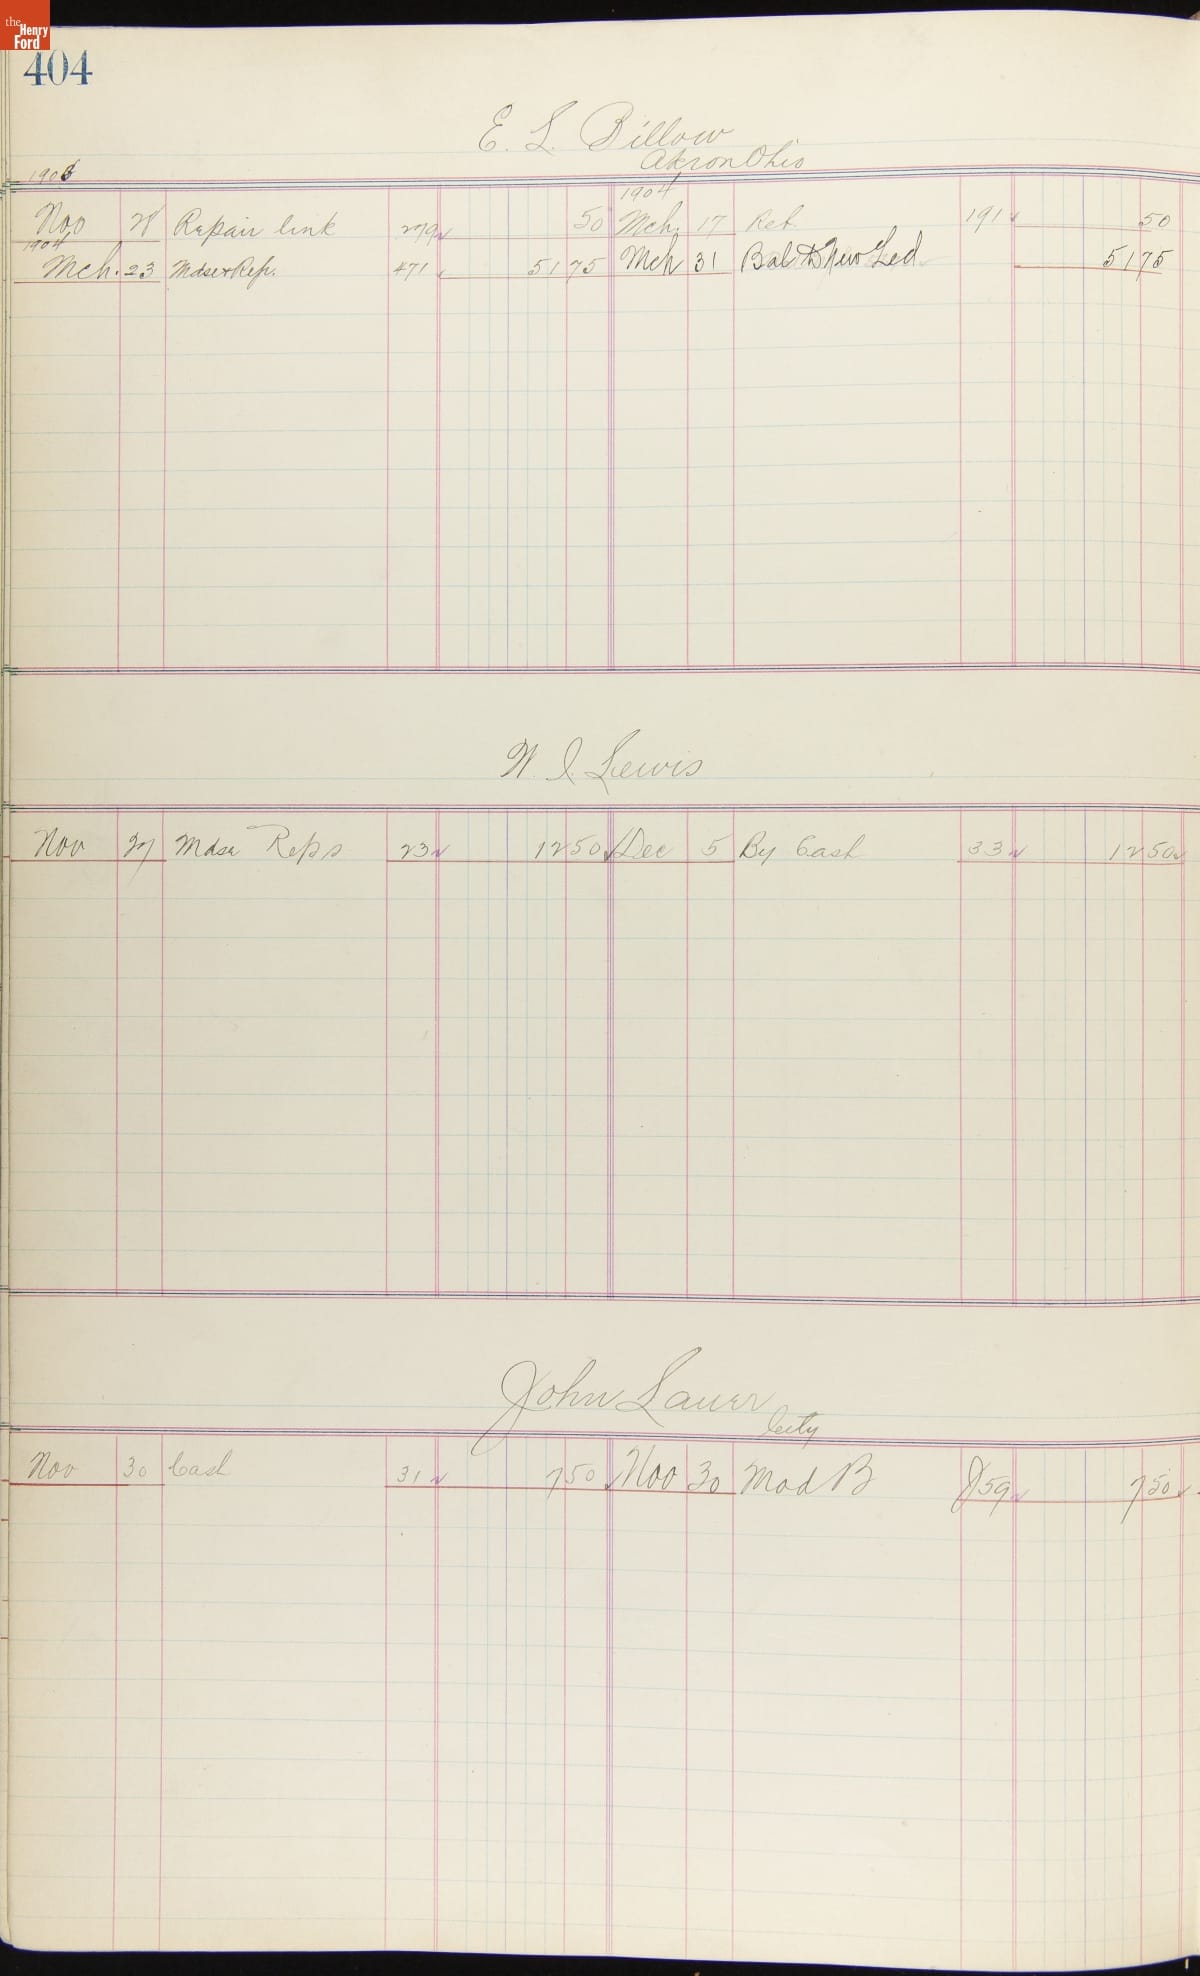 the Henry Ford
404
E. L. Billow
Akron Ohio
1903
1904
Nov 28 Repair link 279 50 Mch. 17 Ret. 191 50
1904
Mch. 23 Mdse + Rep. 471 51 75 Mch 31 Bal to New Led 51 75
W. I. Lewis
Nov 27 Mdse Reps 23 12 50 Dec 5 By Cash 33 12 50
John Lauer
City
Nov 30 Cash 31 7 50 Nov 30 Mod B J59 7 50